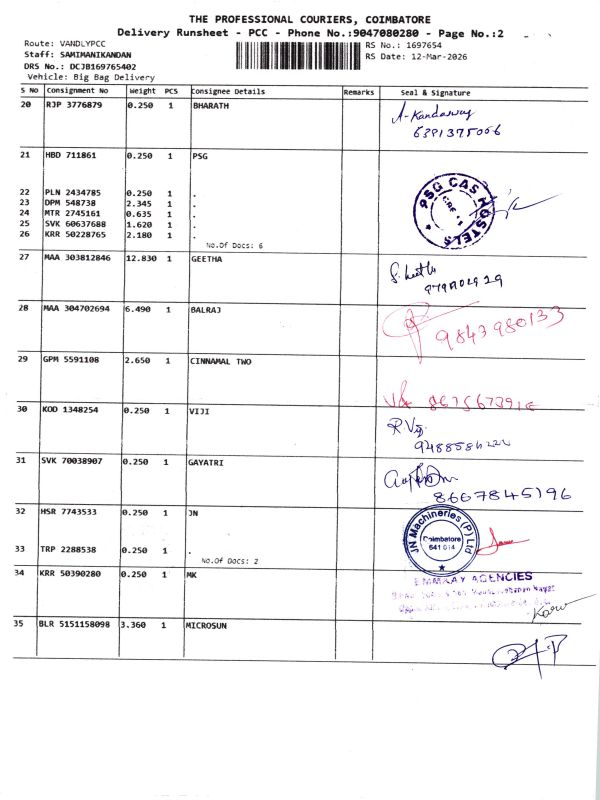 THE PROFESSIONAL COURIERS, COIMBATORE
Delivery Runsheet - PCC - Phone No.:9047080280 - Page No.:2
Route: VANDLYPCC
RS No.: 1697654
Staff: SAMIMANIKANDAN
RS Date: 12-Mar-2026
DRS No.: DCJB169765402
Vehicle: Big Bag Delivery
S No Consignment No Weight PCS Consignee Details Remarks Seal & Signature
20 RJP 3776879 0.250 1 BHARATH
A-Kandasway
6391375006
21 HBD 711861 0.250 1 PSG
22 PLN 2434785 0.250 1 .
23 DPM 548738 2.345 1 .
24 MTR 2745161 0.635 1 .
25 SVK 60637688 1.620 1 .
26 KRR 50228765 2.180 1 .
No.Of Docs: 6
PSG CAS HOSTELS
27 MAA 303812846 12.830 1 GEETHA
28 MAA 304702694 6.490 1 BALRAJ
9843980133
29 GPM 5591108 2.650 1 CINNAMAL TWO
30 KOD 1348254 0.250 1 VIJI
R.Viji
31 SVK 70038907 0.250 1 GAYATRI
8667845196
32 HSR 7743533 0.250 1 JN
33 TRP 2288538 0.250 1 .
No.Of Docs: 2
JN Machineries (P) Ltd
Coimbatore
641 014
34 KRR 50390280 0.250 1 MK
EMMKAY AGENCIES
35 BLR 5151158098 3.360 1 MICROSUN